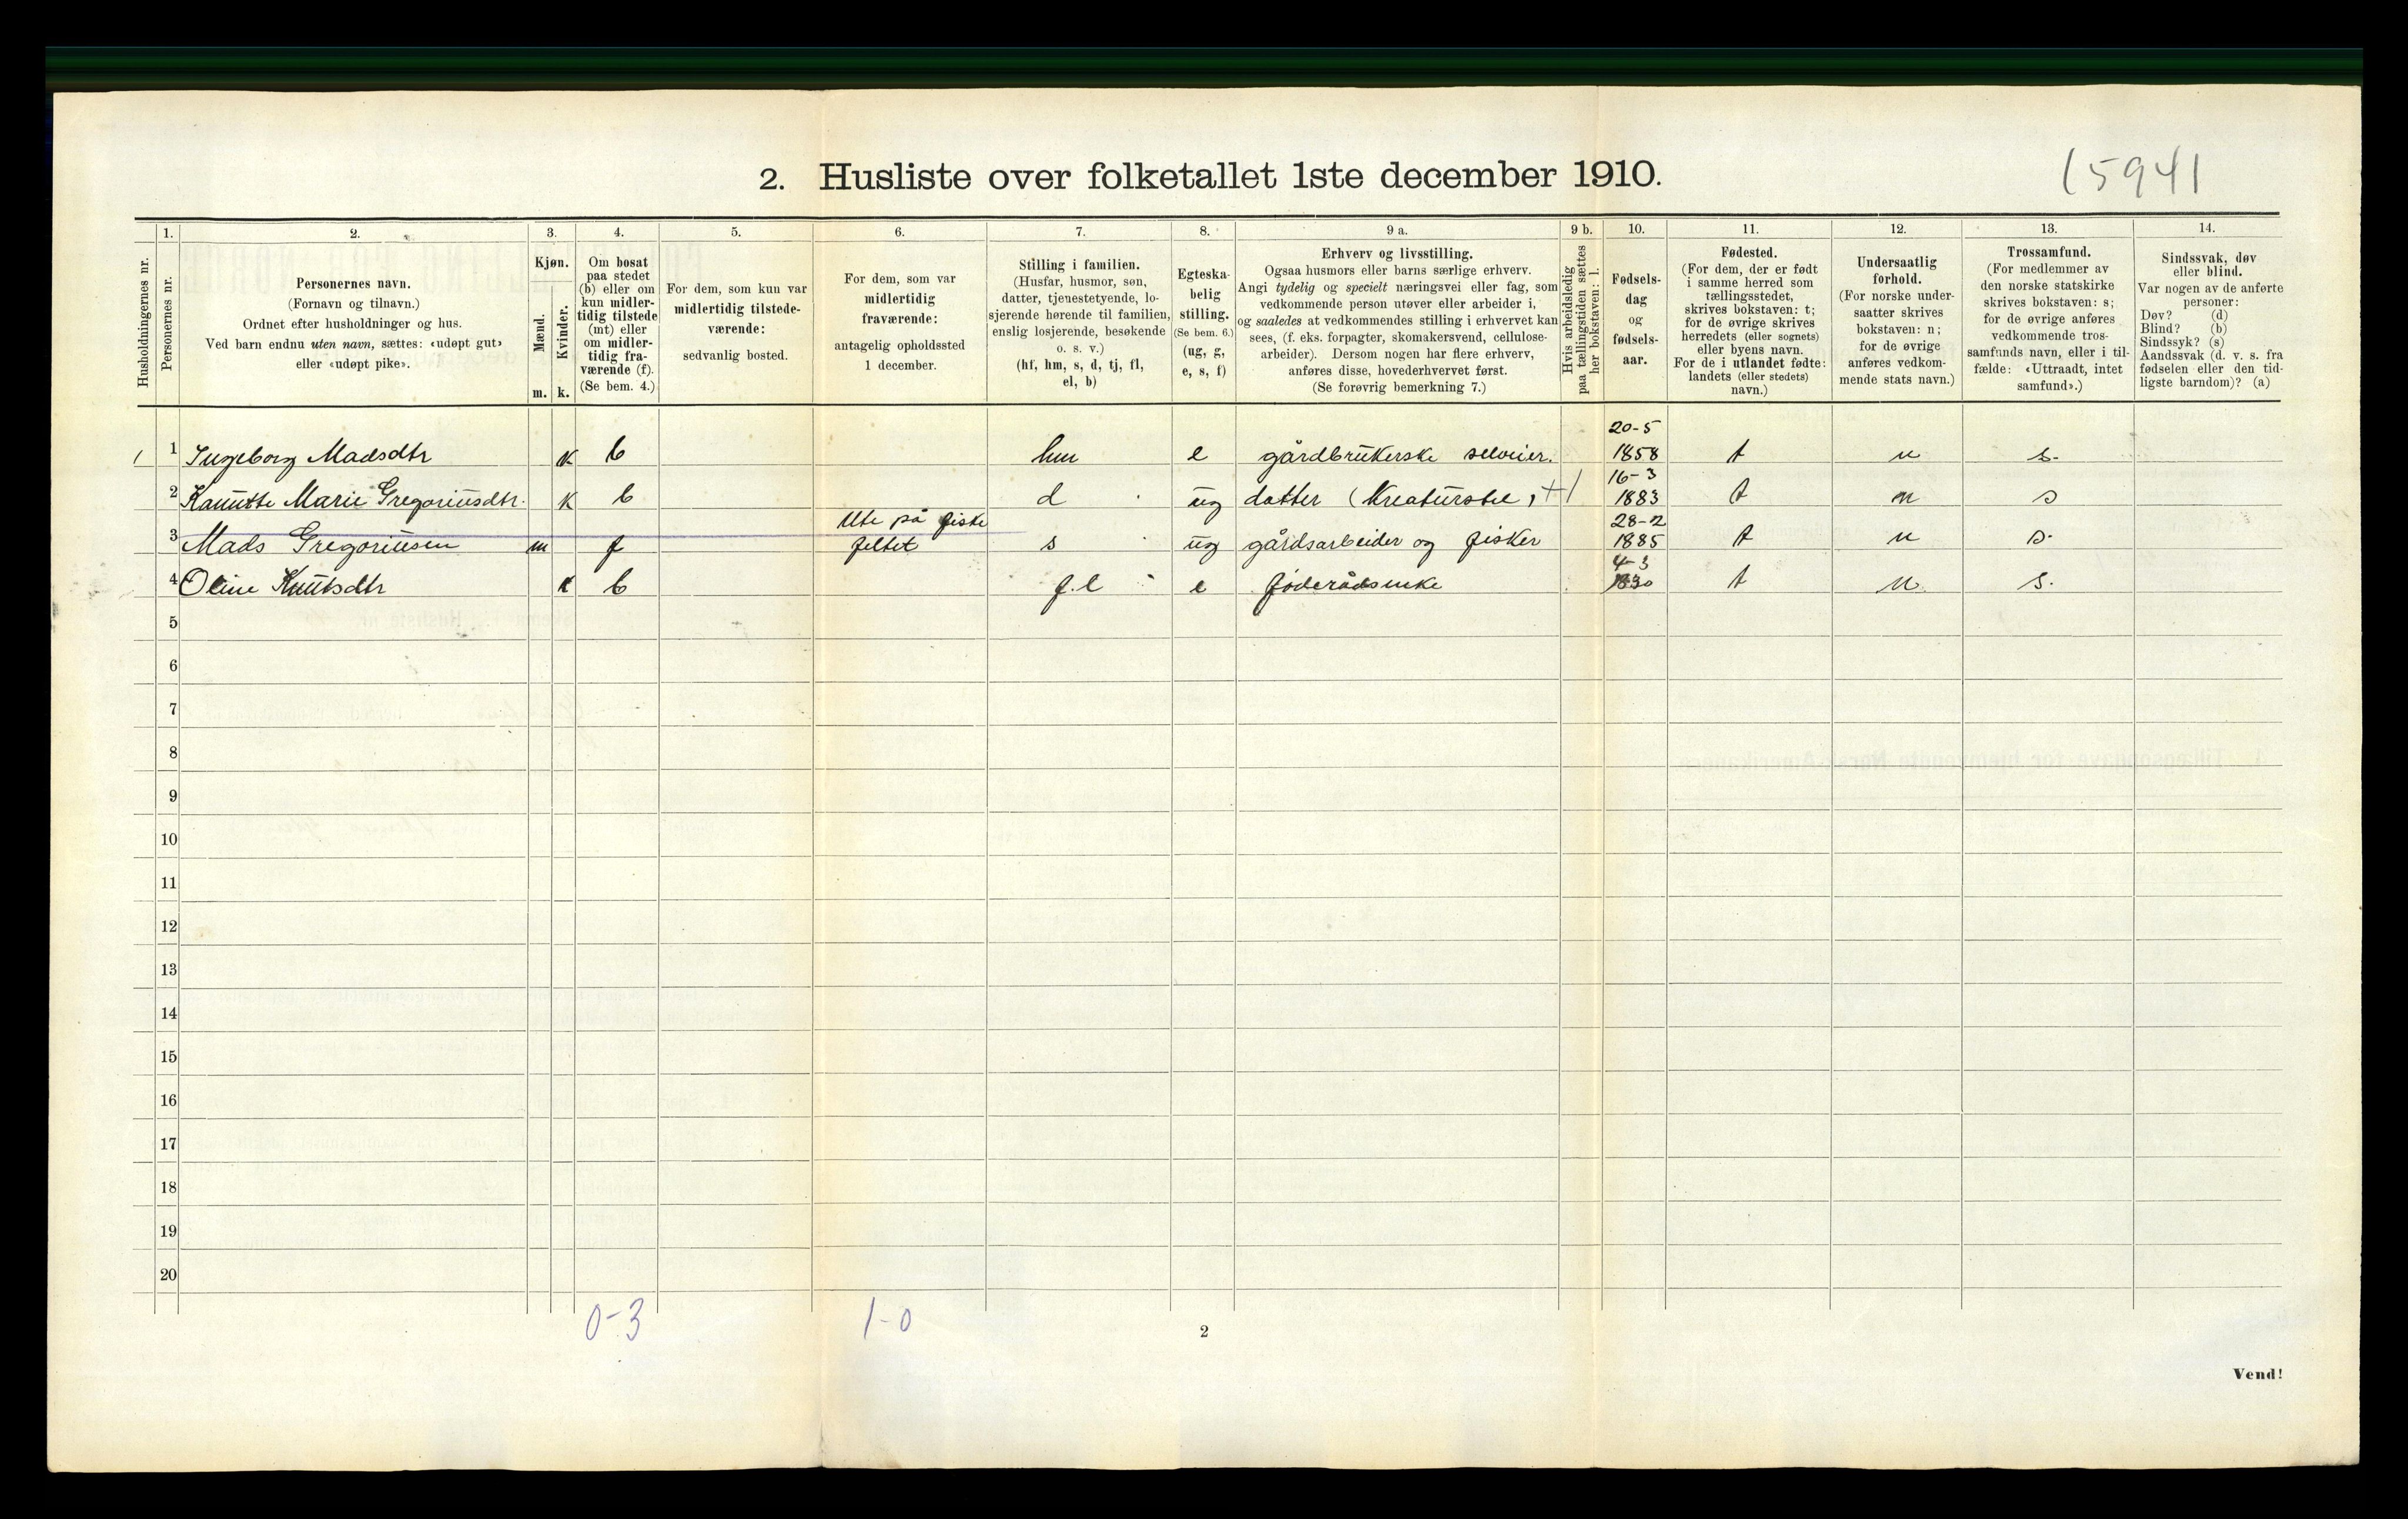 2. Husliste over folketallet 1ste december 1910.
15941
1. 2. 3. 4. 5. 6. 7. 8. 9 a. 9 b. 10. 11. 12. 13. 14.
Husholdningernes nr.
Personernes nr.
Personernes navn.
(Fornavn og tilnavn.)
Ordnet efter husholdninger og hus.
Ved barn endnu uten navn, sættes: «udøpt gut»
eller «udøpt pike».
Kjøn.
Mænd.
Kvinder.
m. k.
Om bosat
paa stedet
(b) eller om
kun midler-
tidig tilstede
(mt) eller
om midler-
tidig fra-
værende (f).
(Se bem. 4.)
For dem, som kun var
midlertidig tilstede-
værende:
sedvanlig bosted.
For dem, som var
midlertidig
fraværende:
antagelig opholdssted
1 december.
Stilling i familien.
(Husfar, husmor, søn,
datter, tjenestetyende, lo-
sjerende hørende til familien,
enslig losjerende, besøkende
o. s. v.)
(hf, hm, s, d, tj, fl,
el, b)
Egteska-
belig
stilling.
(Se bem. 6.)
(ug, g,
e, s, f)
Erhverv og livsstilling.
Ogsaa husmors eller barns særlige erhverv.
Angi tydelig og specielt næringsvei eller fag, som
vedkommende person utøver eller arbeider i,
og saaledes at vedkommendes stilling i erhvervet kan
sees, (f. eks. forpagter, skomakersvend, cellulose-
arbeider). Dersom nogen har flere erhverv,
anføres disse, hovederhvervet først.
(Se forøvrig bemerkning 7.)
Hvis arbeidsledig
paa tællingstiden sættes
her bokstaven: l.
Fødsels-
dag
og
fødsels-
aar.
Fødested.
(For dem, der er født
i samme herred som
tællingsstedet,
skrives bokstaven: t;
for de øvrige skrives
herredets (eller sognets)
eller byens navn.
For de i utlandet fødte:
landets (eller stedets)
navn.)
Undersaatlig
forhold.
(For norske under-
saatter skrives
bokstaven: n;
for de øvrige
anføres vedkom-
mende stats navn.)
Trossamfund.
(For medlemmer av
den norske statskirke
skrives bokstaven: s;
for de øvrige anføres
vedkommende tros-
samfunds navn, eller i til-
fælde: «Uttraadt, intet
samfund».)
Sindssvak, døv
eller blind.
Var nogen av de anførte
personer:
Døv? (d)
Blind? (b)
Sindssyk? (s)
Aandssvak (d. v. s. fra
fødselen eller den tid-
ligste barndom)? (a)
1 1 Ingeborg Madsdtr k b hm e gårdbrukerske selveier. 20-5 1858 t n s.
2 Marie Gregoriusdtr. k b d ug datter (Kreaturstel) 16-3 1883 t n s
3 Mads Gregoriusen m f Ute på fiske feltet s ug gårdsarbeider og fisker 28-2 1885 t n s.
4 Oline Knutsdtr k b f.l e føderådsenke 4-3 1830 t n s.
5
6
7
8
9
10
11
12
13
14
15
16
17
18
19
20
0-3 1-0
2
Vend!